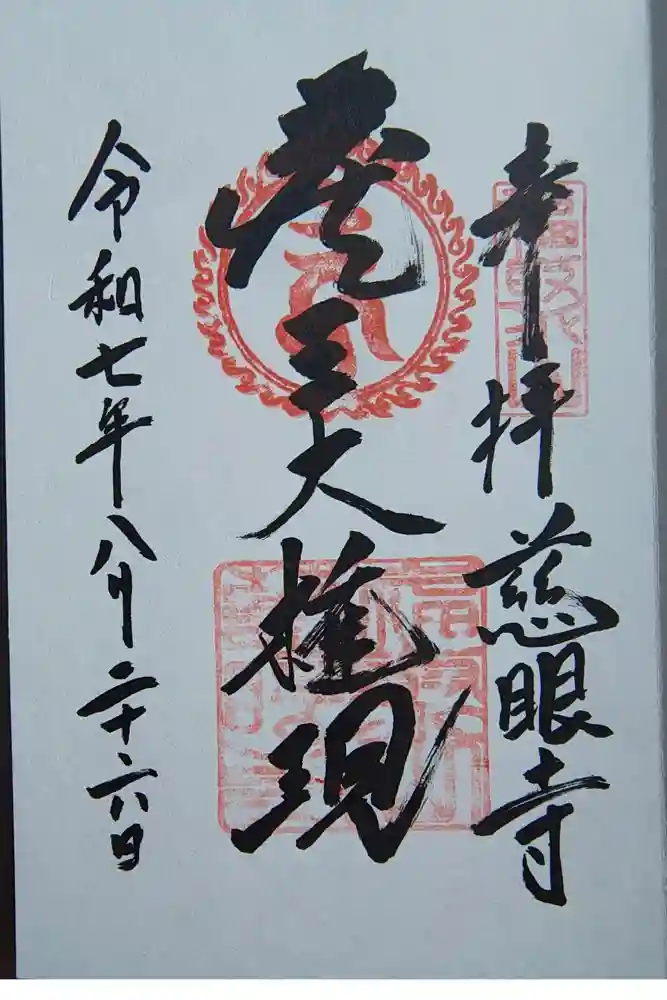 奉拝 慈眼寺
蔵王大権現
令和七年八月二十六日